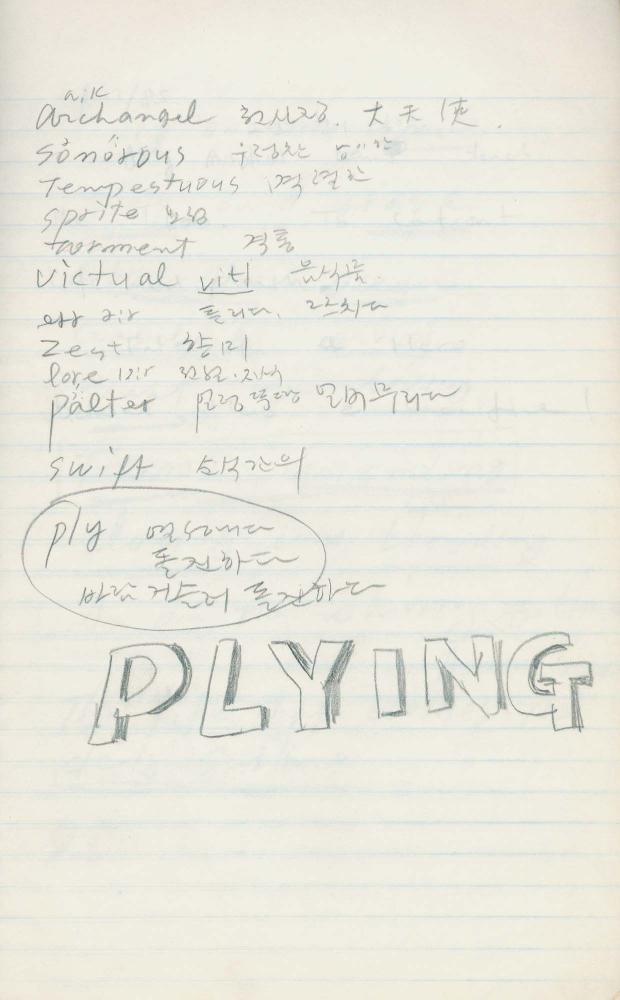 a:k
archangel 천사장. 大天使.
sonorous 우렁찬
Tempestuous 격렬한
sprite 요정
torment 격통
victual vitl 음식물.
err əːr 틀리다, 그르치다
Zest 향미
lore 전설·지식
palter 얼버무리다
swift 순식간의
ply 열심이다
돌진하다
바람 거슬러 돌진하다
PLYING